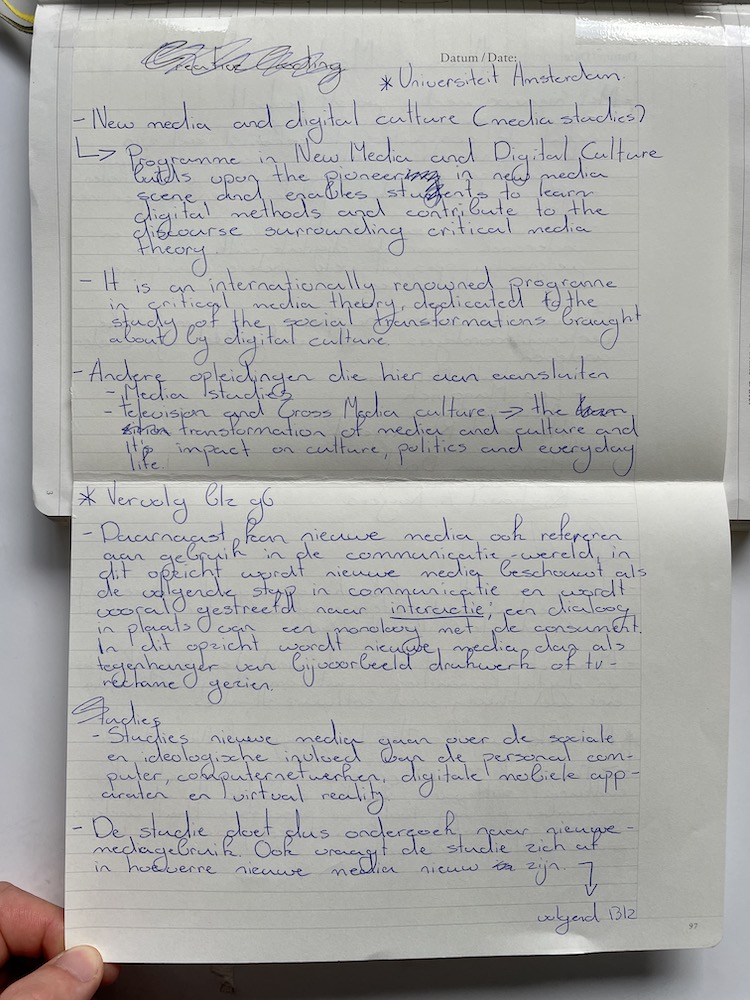 Datum / Date:
* Universiteit Amsterdam.
- New media and digital culture (media studies)
↳ Programme in New Media and Digital Culture
builds upon the pioneering in new media
scene and enables students to learn
digital methods and contribute to the
discourse surrounding critical media
theory.
- It is an internationally renowned programme
in critical media theory, dedicated to the
study of the social transformations braught
about by digital culture
- Andere opleidingen die hier aan aansluiten
- Media studies
- Television and Cross Media culture → the
transformation of media and culture and
it's impact on culture, politics and everyday
life.
* Vervolg blz 96
- Daarnaast kan nieuwe media ook refereren
aan gebruik in de communicatie-wereld, in
dit opzicht wordt nieuwe media beschouwt als
de volgende stap in communicatie en wordt
vooral gestreefd naar interactie; een dialoog
in plaats van een monoloog met de consument.
In dit opzicht wordt nieuwe media dan als
tegenhanger van bijvoorbeeld drukwerk of tv-
reclame gezien.
Studies
- Studies nieuwe media gaan over de sociale
en ideologische invloed van de personal com-
puter, computernetwerken, digitale mobiele app-
araten en virtual reality.
- De studie doet dus onderzoek naar nieuwe-
mediagebruik. Ook vraagt de studie zich af
in hoeverre nieuwe media nieuw zijn. ↓
volgend blz
97